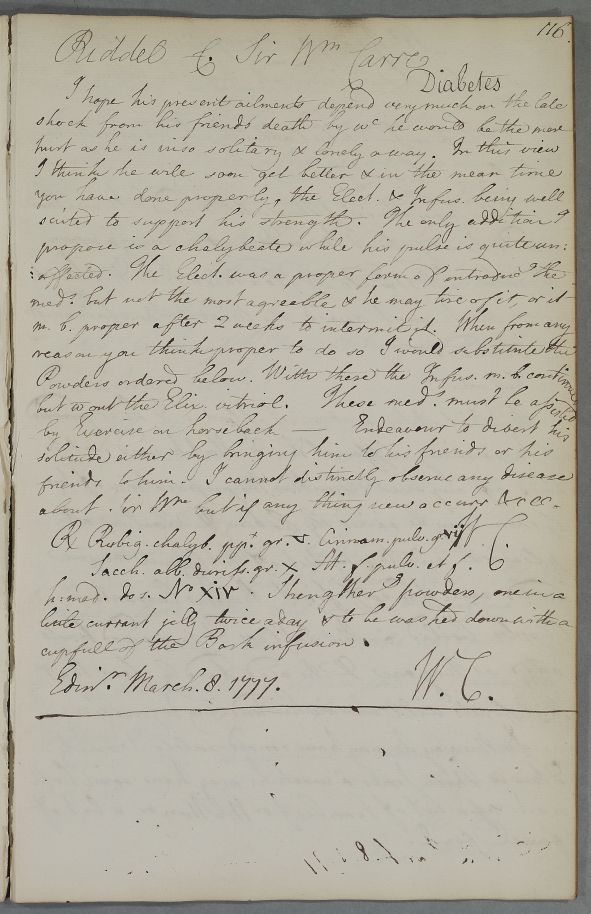 116.
Riddel C. Sir Wm Carre
Diabetes
I hope his present ailments depend very much on the late
shock from his friends death by wc he would be the more
hurt as he is in so solitary & lonely a way. In this view
I think he will soon get better & in the mean time
you have done properly, the Elect. & Infus. being well
suited to support his strength. The only addition I
propose is a chalybeate while his pulse is quite un:
:affected. The Elect. was a proper form of introducg the
med. but not the most agreeable & he may tire of it, or it
m. b. proper after 2 weeks to intermit it. When from any
reason you think proper to do so I would substitute the
Powders ordered below. With these the Infus. m. b. continued
but wout the Elix. vitriol. These meds. must be assisted
by Exercise on horseback — Endeavour to divert his
solitude either by bringing him to his friends or his
friends to him. I cannot distinctly observe any disease
about Sir Wm but if any thing new occurs &c &c.
℞ Rubig. chalyb. ppt. gr. v. Cinnam. pulv. gr vij
Sacch. alb. duriss. gr. x M. f. pulv. et f.
h: mod. dos. No XIV. Strengtheng powders, one in a
little currant jelly twice a day & to be washed down with a
cupfull of the Bark infusion.
Edinr. March. 8. 1777. W. C.